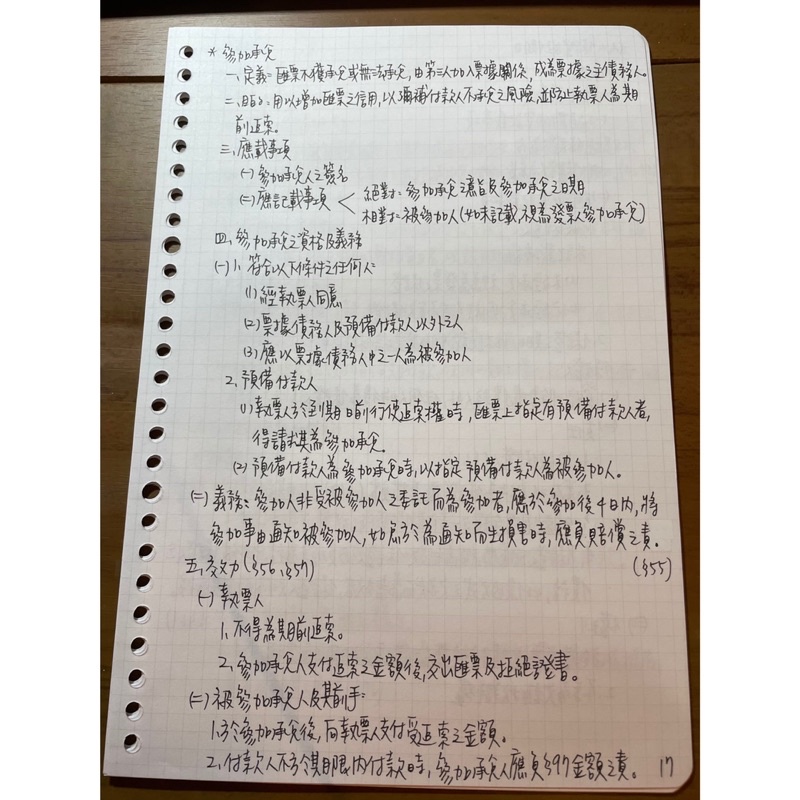 * 參加承兌
一、定義=匯票不獲承兌或無法承兌,由第三人加入票據關係,成為票據之主債務人。
二、目的:用以增加匯票之信用,以彌補付款人不承兌之風險,並防止執票人為期
前追索。
三、應載事項
(一) 參加承兌人之簽名
(二) 應記載事項 < 絕對:參加承兌之意旨及參加承兌之日期
相對:被參加人(如未記載,視為發票人參加承兌)
四、參加承兌之資格及義務
(一) 1. 符合以下條件之任何人=
(1) 經執票人同意
(2) 票據債務人及預備付款人以外之人
(3) 應以票據債務人中之一人為被參加人
2. 預備付款人
(1) 執票人於到期日前行使追索權時,匯票上指定有預備付款人者,
得請求其為參加承兌。
(2) 預備付款人為參加承兌時,以指定預備付款人為被參加人。
(二) 義務:參加人非受被參加人之委託而為參加者,應於參加後4日內,將
參加事由通知被參加人,如怠於為通知而生損害時,應負賠償之責。
(§55)
五、效力(§56、§57)
(一) 執票人
1. 不得為期前追索。
2. 參加承兌人支付追索之金額後,交出匯票及拒絕證書。
(二) 被參加承兌人及其前手=
1. 於參加承兌後,向執票人支付受追索之金額。
2. 付款人不於期限內付款時,參加承兌人應負§97金額之責。
17